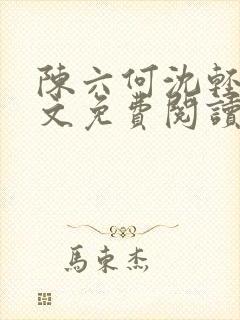 陳六何沈輕
文免費閱讀
馬東杰